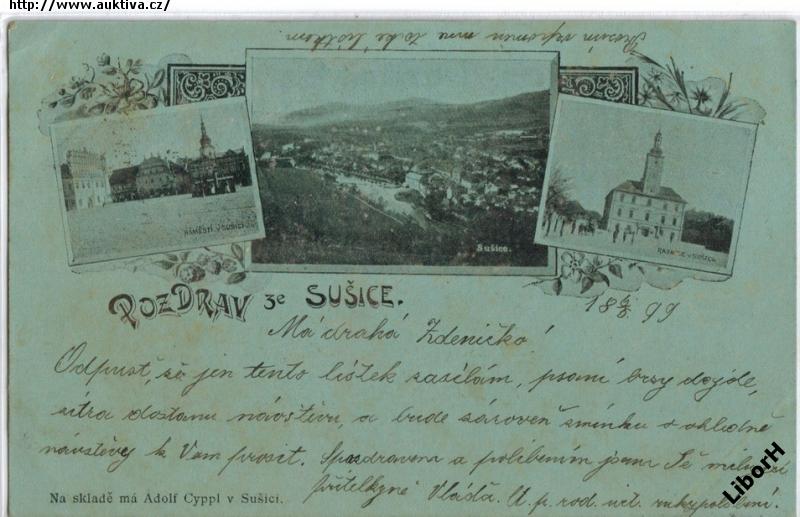 http://www.auktiva.cz/
NÁMĚSTÍ V SUŠICI
Sušice.
RADNICE V SUŠICI
POZDRAV ze SUŠICE.
18 6/8 99
Má drahá Zdeničko!
Odpusť, že jen tento lístek zasílám, psaní brzy dojde,
zítra dostanu návštěvu, a bude zároveň zmínka o ohledně
návštěvy k Vám prosit. Spozdravem a políbením jsem Tě milující
přítelkyně Vlasta. U. p. rod. uct. rukypolíbení.
Na skladě má Adolf Cyppl v Sušici.
LiborH